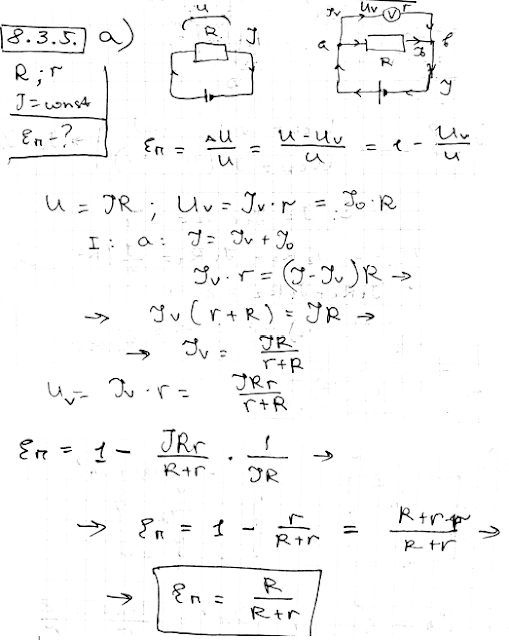 8.3.5. a)
R ; r
J = const
εп - ?
u
R
J
Jv Uv V r
a R J₀ b
J
εп = ΔU/U = (U - Uv)/U = 1 - Uv/U
U = JR ; Uv = Jv · r = J₀ · R
I : a : J = Jv + J₀
Jv · r = (J - Jv) R →
→ Jv (r + R) = JR →
→ Jv = JR/(r+R)
Uv = Jv · r = JRr/(r+R)
εп = 1 - JRr/(R+r) · 1/JR →
→ εп = 1 - r/(R+r) = (R+r-r)/(R+r) →
→ εп = R/(R+r)